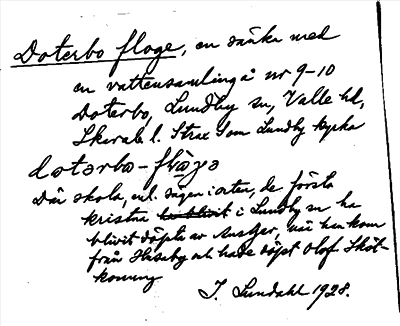 Doterbo floge, en sänka med
en vattensamling å nr 9-10
Doterbo, Lundby sn, Valle hd,
Skarab. l. Strax S om Lundby kyrka
dotarbo-
Där skola, enl. sägen i orten, de första
kristna i Lundby sn ha
blivit döpta av Ansgar, när han kom
från Husaby och hade döpt Olof Sköt-
konung
J. Lundahl 1928.